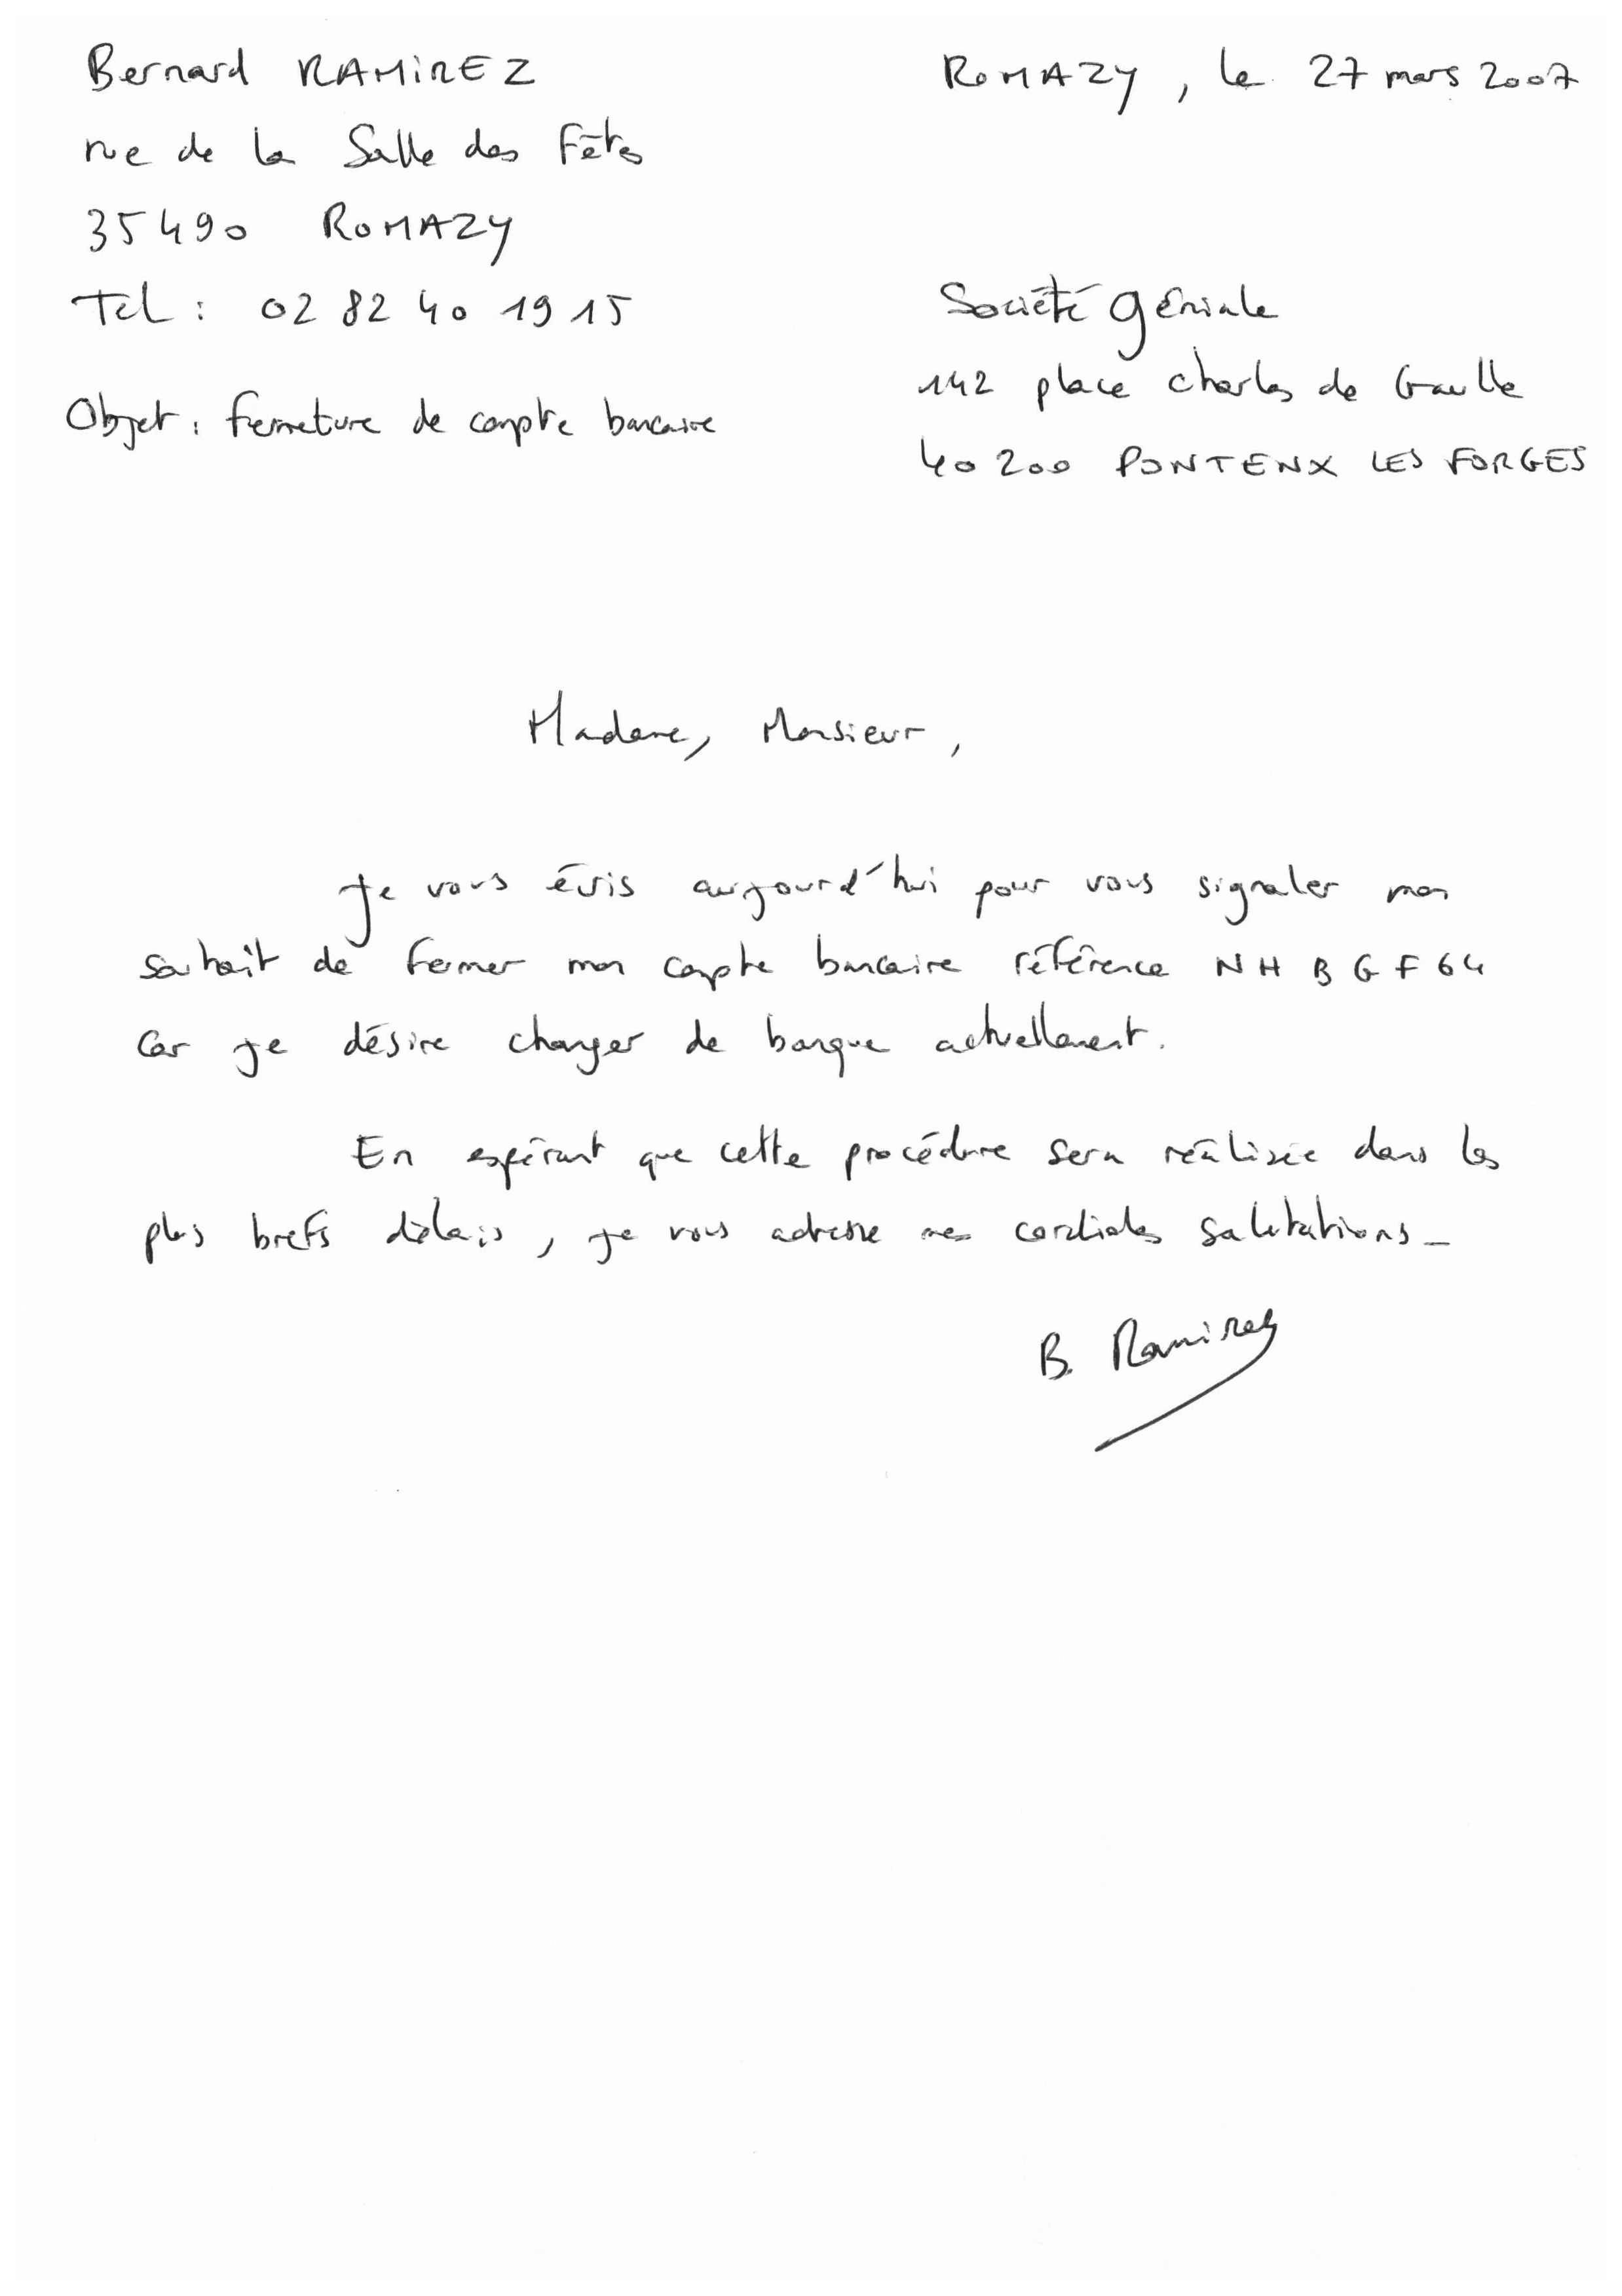 Bernard RAMIREZ
rue de la Salle des Fêtes
35490 ROMAZY
Tel : 02 82 40 19 15
Objet : fermeture de compte bancaire
ROMAZY, le 27 mars 2007
Société géniale
142 place Charles de Gaulle
40200 PONTENX LES FORGES
Madame, Monsieur,
Je vous écris aujourd'hui pour vous signaler mon
souhait de fermer mon compte bancaire référence NHBGF64
car je désire changer de banque actuellement.
En espérant que cette procédure sera réalisée dans les
plus brefs délais, je vous adresse mes cordiales salutations_
B. Ramirez